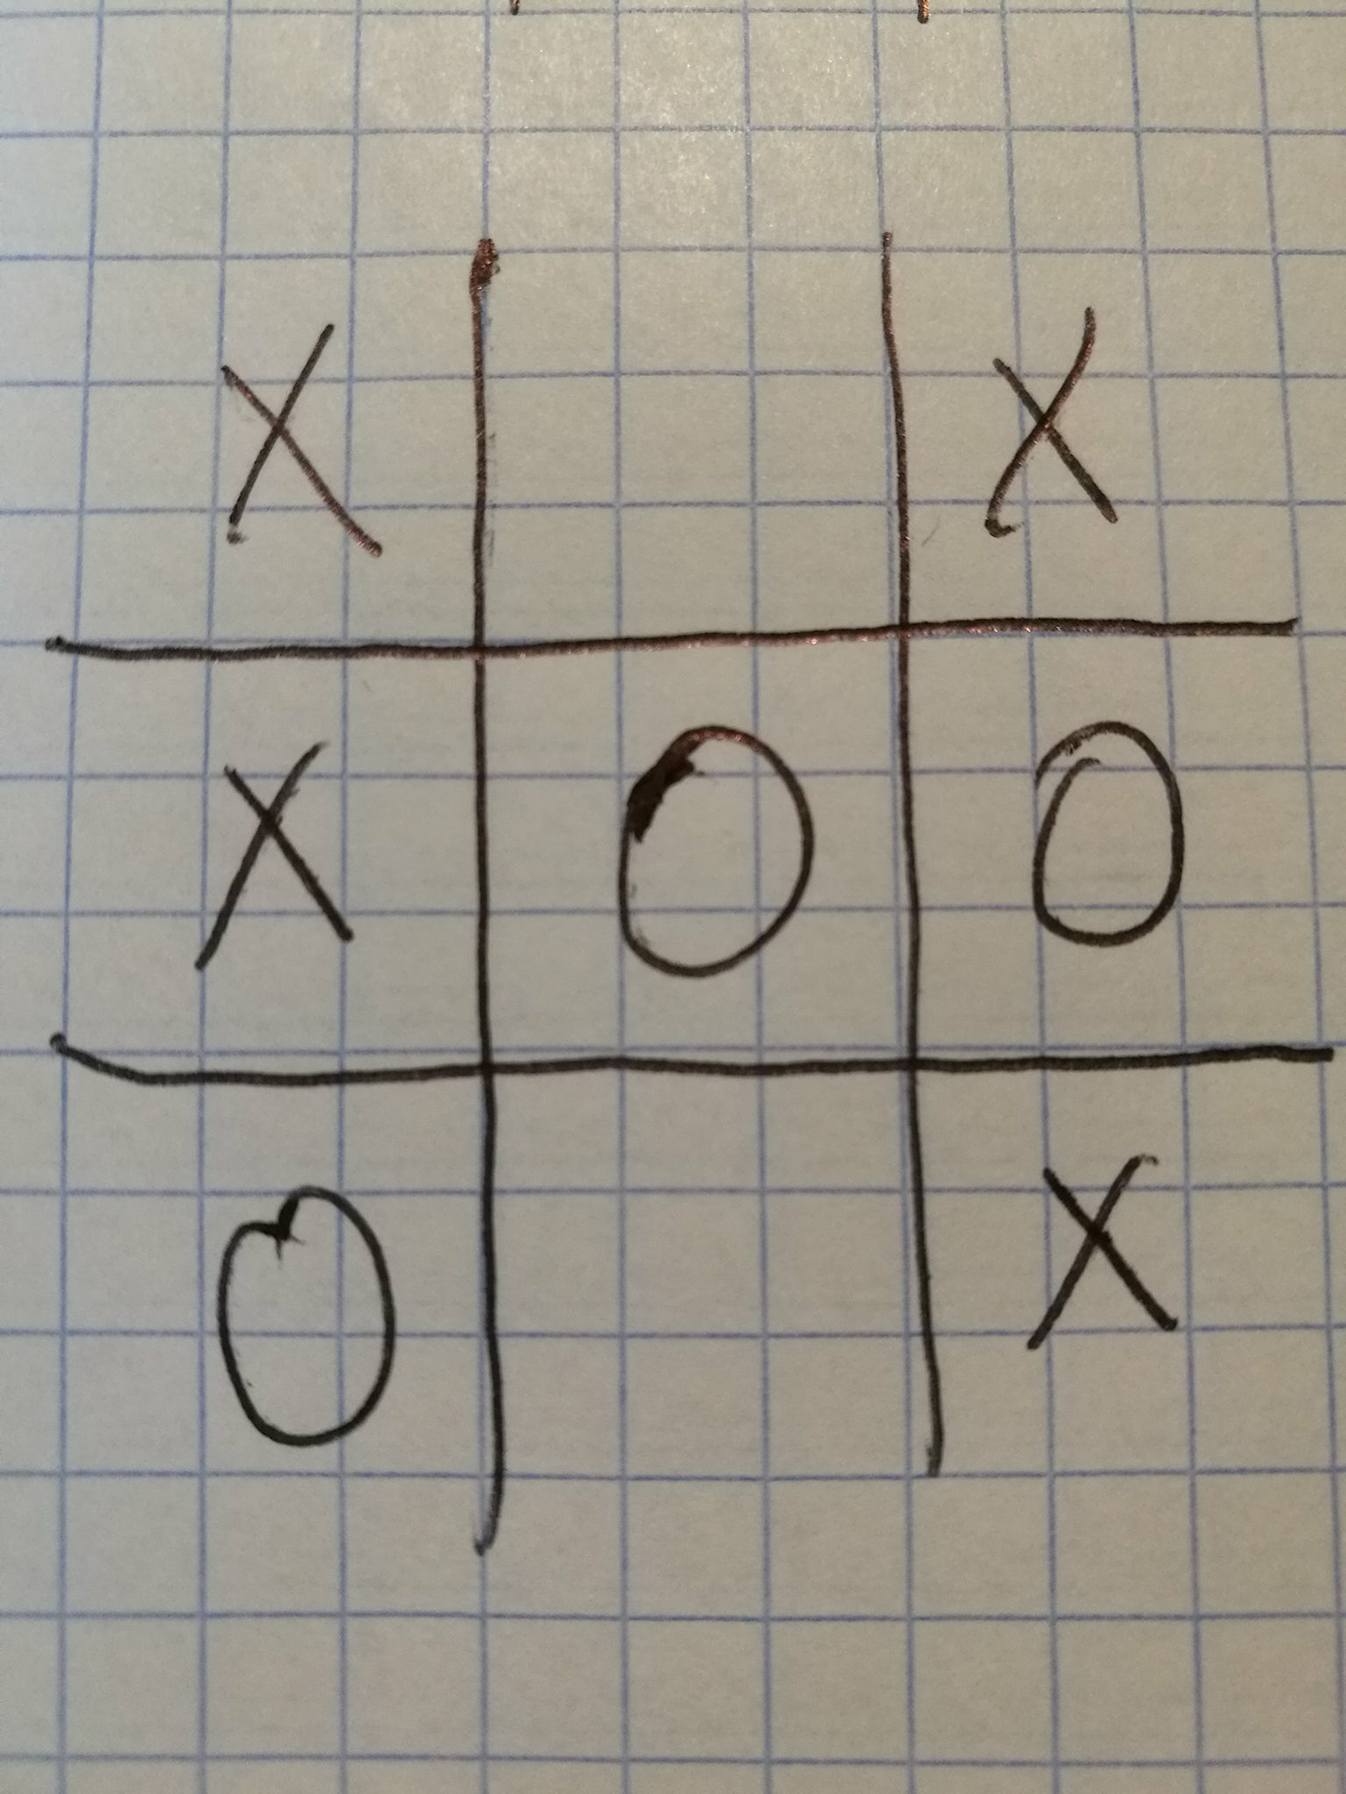 X X
X O O
O X